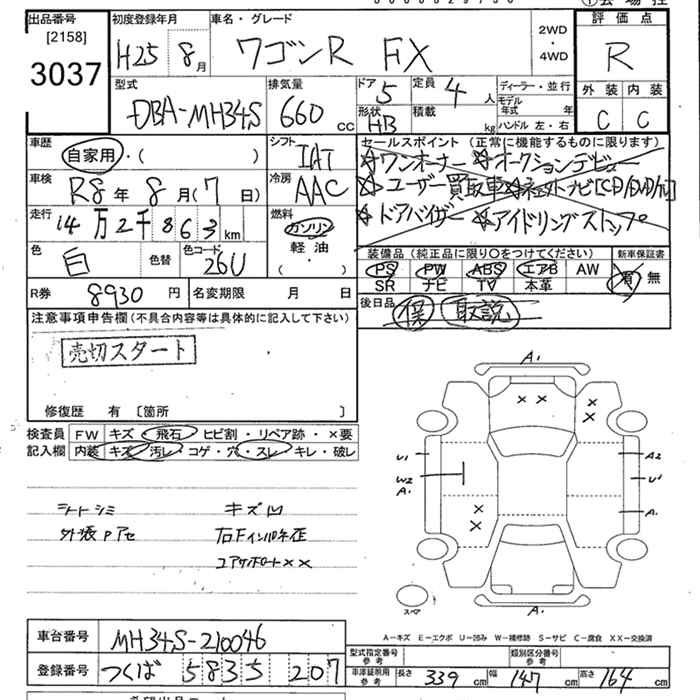 出品番号 [2158] 3037
初度登録年月 H25年 8月
車名・グレード ワゴンR FX
2WD・4WD
評価点 R
型式 DBA-MH34S
排気量 660 cc
ドア 5
定員 4 人
ディーラー・並行
モデル年式 年
形状 HB
積載 kg
ハンドル 左・右
外装 内装
C C
車歴 自家用・( )
シフト IAT
セールスポイント (正常に機能するものに限ります)
☆ワンオーナー ☆オークションデビュー
☆ユーザー買取車
☆ドアバイザー ☆アイドリングストップ
車検 R8年 8月(7日)
冷房 AAC
走行 14万2千863km
燃料 ガソリン 軽油 ・( )
色 白
色替
色コード 26U
装備品 (純正品に限り〇をつけてください)
新車保証書
PS PW ABS エアB AW
SR ナビ TV 本革
有 無
R券 8930円
名変期限 月 日
後日品 保 取説
注意事項申告欄(不具合内容等は具体的に記入して下さい)
売切スタート
修復歴 有 [箇所 ]
検査員記入欄
FW キズ・飛石・ヒビ割・リペア跡・×要
内装 キズ・汚レ・コゲ・穴・スレ・キレ・破レ
シートシミ キズ凹
A1
U1
W2
A1
A2
U1
A1
A1
スペア
A−キズ E−エクボ U−凹み W−補修跡 S−サビ C−腐食 XX−交換済
車台番号 MH34S-210046
登録番号 つくば 5835 207
型式指定番号 参考
類別区分番号 参考
車庫証明用参考 長さ 339cm 幅 147cm 高さ 164cm